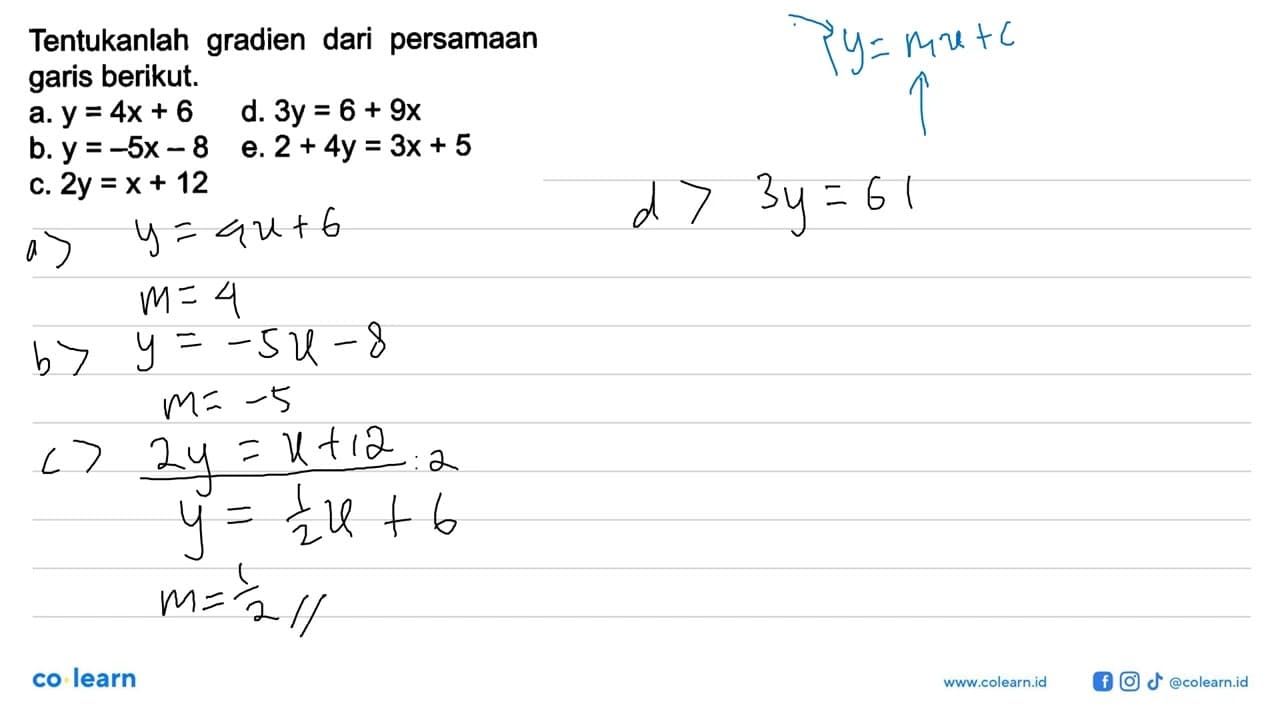 Tentukanlah gradien dari persamaan
garis berikut.
a. y = 4x + 6 d. 3y = 6 + 9x
b. y = –5x – 8 e. 2 + 4y = 3x + 5
c. 2y = x + 12
y = mx + c
a> y = 4x + 6
m = 4
b> y = -5x - 8
m = -5
c> 2y = x + 12 : 2
y = 1/2 x + 6
m = 1/2 //
d> 3y = 6 |
co learn
www.colearn.id @colearn.id